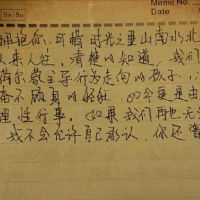 Memo No.
Date
拥抱你、可惜时光之里山南水北
以来人往，清楚的知道，我们
荷尔蒙主导行为走向的孩子，
奋不顾身的轻狂，如今更是由
理性行事，如果我们再也无
我不会允许自己承认，你还